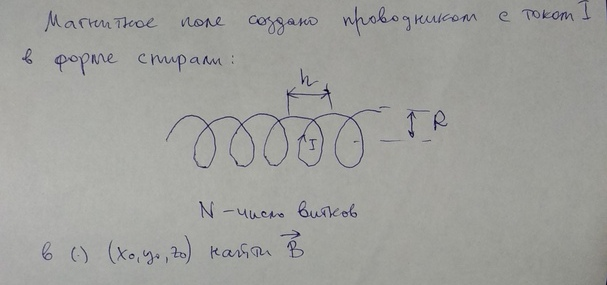 Магнитное поле создано проводником с током I
в форме спирали:
h
R
I
N - число витков
в (·) (x₀, y₀, z₀) найти B⃗